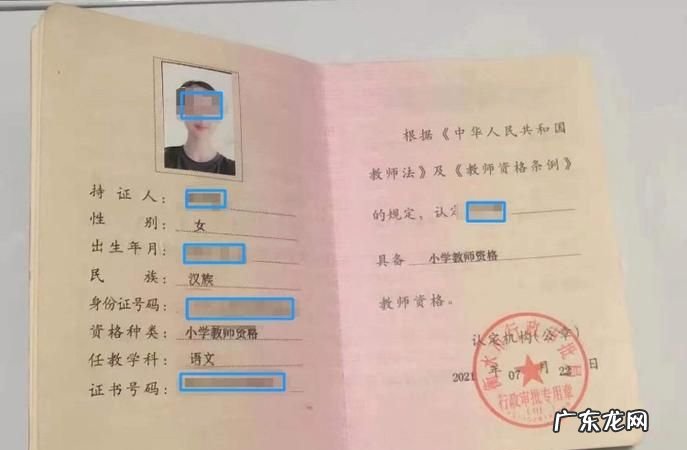 持 证 人：
性 别： 女
出生年月：
民 族： 汉族
身份证号码：
资格种类：小学教师资格
任教学科： 语文
证书号码：
根据《中华人民共和国
教师法》及《教师资格条例》
的规定，认定
具备 小学教师资格
教师资格。
认定机构(公章)
2021 年 07 月 22 日
行政审批专用章
广东龙网